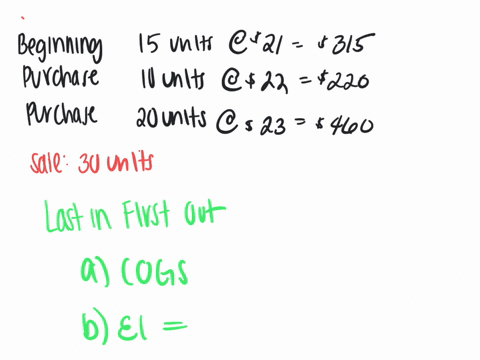 Beginning 15 units @ $21 = $315
Purchase 10 units @ $22 = $220
Purchase 20 units @ $23 = $460
Sale: 30 units
Last in First Out
a) COGS
b) EI =